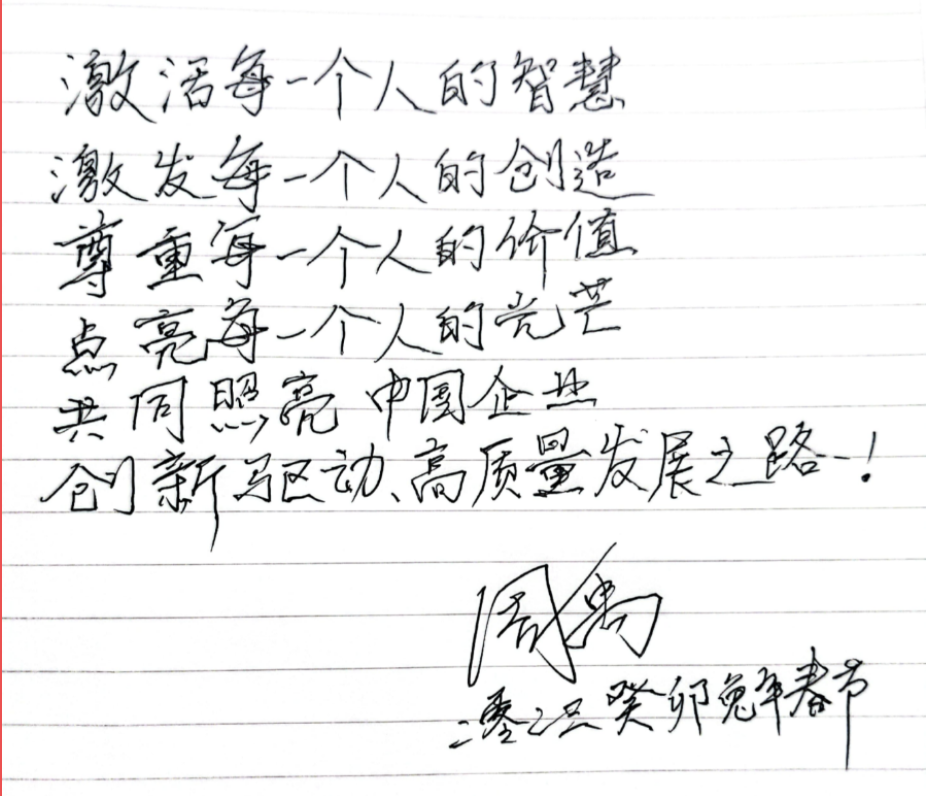 激活每一个人的智慧
激发每一个人的创造
尊重每一个人的价值
点亮每一个人的光芒
共同照亮中国企业
创新驱动、高质量发展之路!
周禹
二零二三癸卯兔年春节